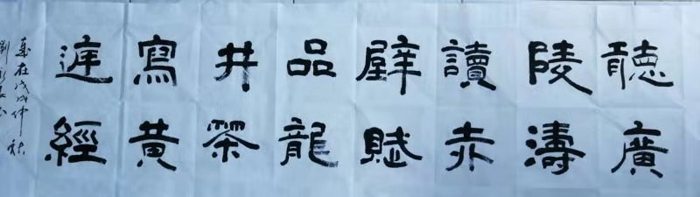 聽廣
陵濤
讀赤
壁賦
品龍
井茶
寫黃
庭經
歲在戊戌仲秋
劉